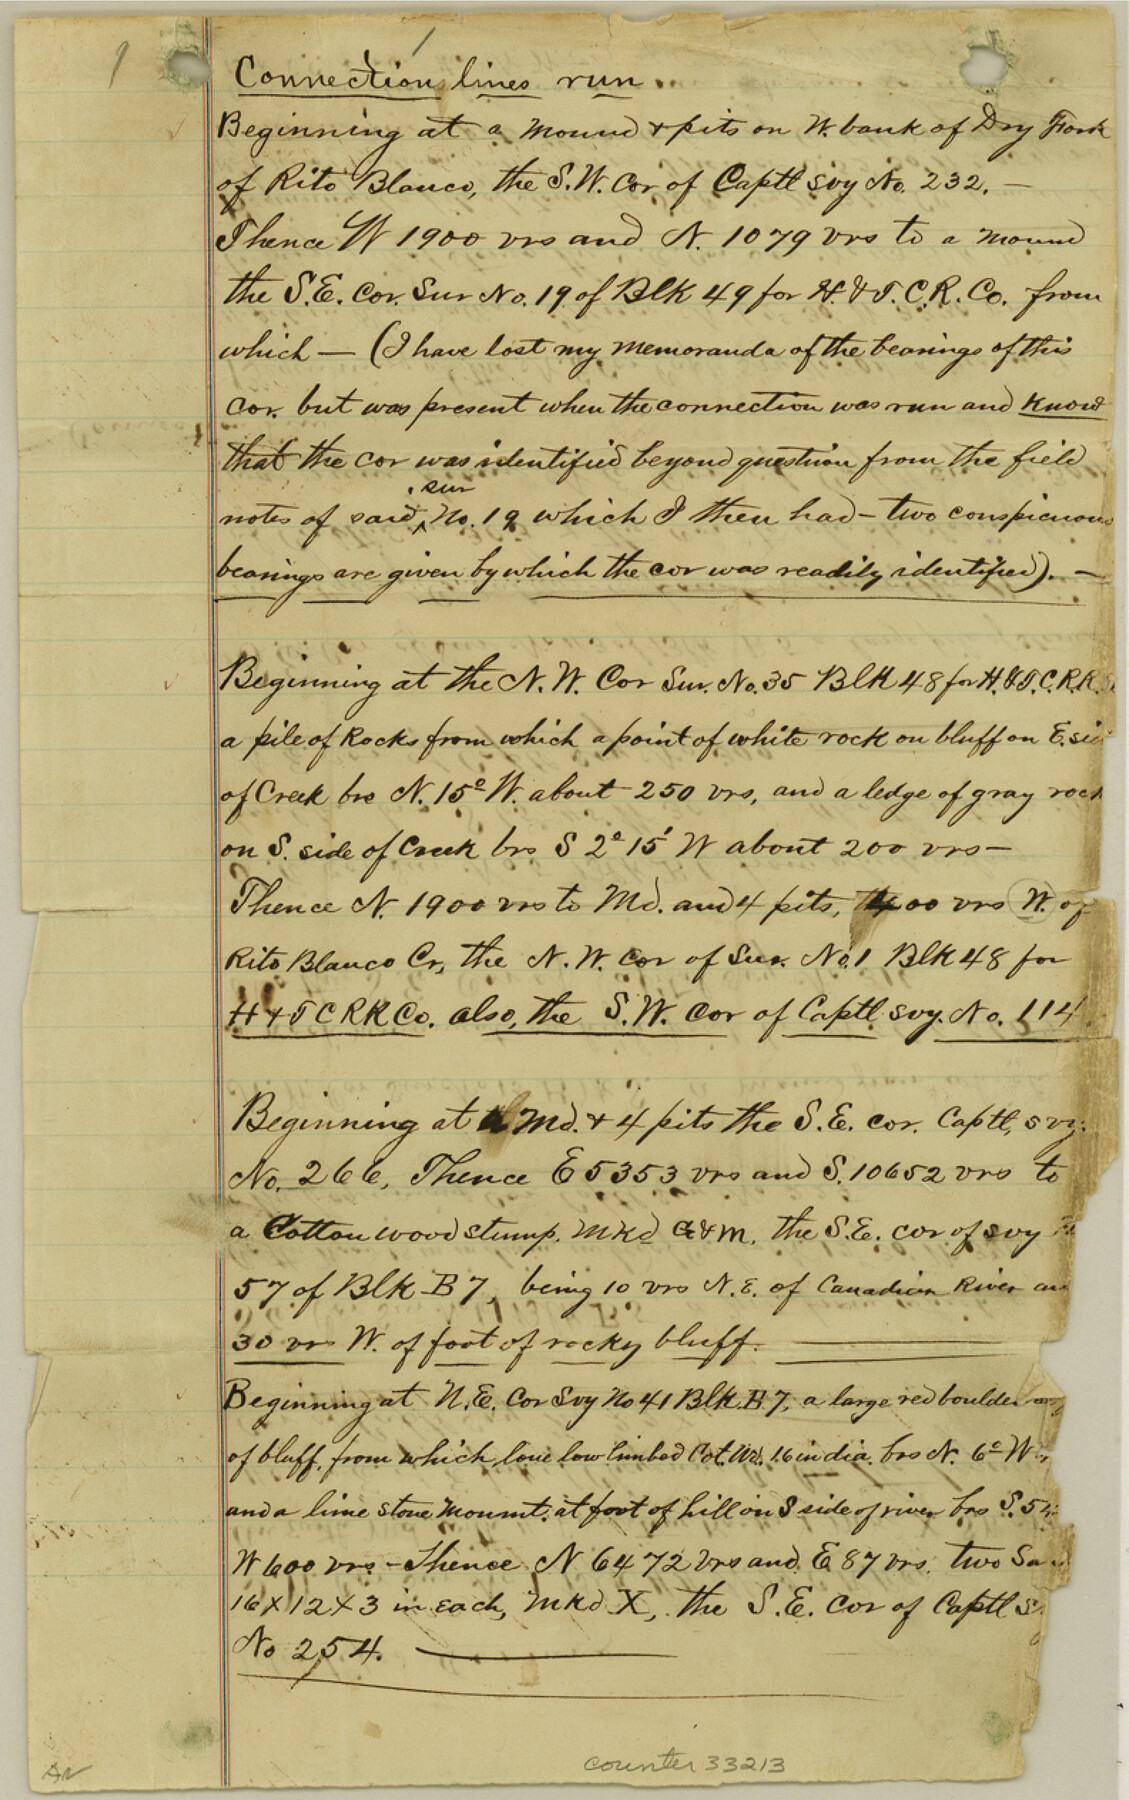 1
1
Connection lines run
Beginning at a mound & pits on W. bank of Dry Fork
of Rito Blanco, the S.W. Cor of Captl svy No. 232. —
Thence W 1900 vrs and N. 1079 vrs to a mound
the S.E. Cor. Sur No. 19 of Blk 49 for H. & T. C. R. Co. from
which — (I have lost my memoranda of the bearings of this
cor. but was present when the connection was run and know
that the cor was identified beyond question from the field
sur
notes of said ^ No. 19 which I then had – two conspicuous
bearings are given by which the cor was readily identified). —
Beginning at the N.W. Cor Sur. No. 35 Blk 48 for H. & T. C. R. R.
a pile of Rocks from which a point of white rock on bluff on E. sid
of Creek brs N. 15° W. about 250 vrs, and a ledge of gray rock
on S. side of Creek brs S 2° 15' W about 200 vrs —
Thence N. 1900 vrs to Md. and 4 pits, 400 vrs W. of
Rito Blanco Cr, the N.W. Cor of Sur. No. 1 Blk 48 for
H & T C R R Co. also, the S.W. Cor of Captl svy. No. 114
Beginning at Md. & 4 pits the S.E. cor. Captl, svy.
No. 266, Thence E 5353 vrs and S. 10652 vrs to
a Cotton wood stump. Mkd G & M. the S.E. cor of svy
57 of Blk B 7, being 10 vrs N.E. of Canadian River an
30 vrs W. of foot of rocky bluff.
Beginning at N.E. Cor Svy No 41 Blk. B 7, a large red boulder
of bluff, from which lone low limbed Cot. Wd. 16 in dia. brs N. 6° W
and a lime stone Mound. at foot of hill on S side of river brs S. 5
W 600 vrs. – Thence N 6472 vrs and E 87 vrs. two Sa
16 X 12 X 3 in each, mkd X, the S.E. Cor of Captl S
No 254.
counter 33213